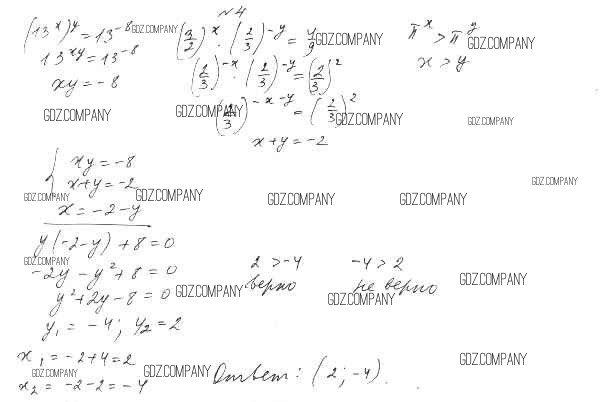 №4
(13^x)^y = 13^-8 GDZ.COMPANY
13^xy = 13^-8
xy = -8
GDZ.COMPANY
(3/2)^x · (2/3)^-y = 4/9 GDZ.COMPANY
(2/3)^-x · (2/3)^-y = (2/3)^2
GDZ.COMPANY
(2/3)^-x-y = (2/3)^2 GDZ.COMPANY
x+y = -2
π^x > π^y GDZ.COMPANY
x > y
GDZ.COMPANY
{ xy = -8
x+y = -2
GDZ.COMPANY GDZ.COMPANY GDZ.COMPANY GDZ.COMPANY GDZ.COMPANY
x = -2-y
y(-2-y)+8=0
GDZ.COMPANY
-2y - y^2 + 8 = 0
y^2 + 2y - 8 = 0 GDZ.COMPANY
y1 = -4; y2 = 2
2 > -4
верно
-4 > 2
не верно
GDZ.COMPANY GDZ.COMPANY
x1 = -2+4 = 2
GDZ.COMPANY GDZ.COMPANY
x2 = -2-2 = -4
Ответ: (2; -4).
GDZ.COMPANY